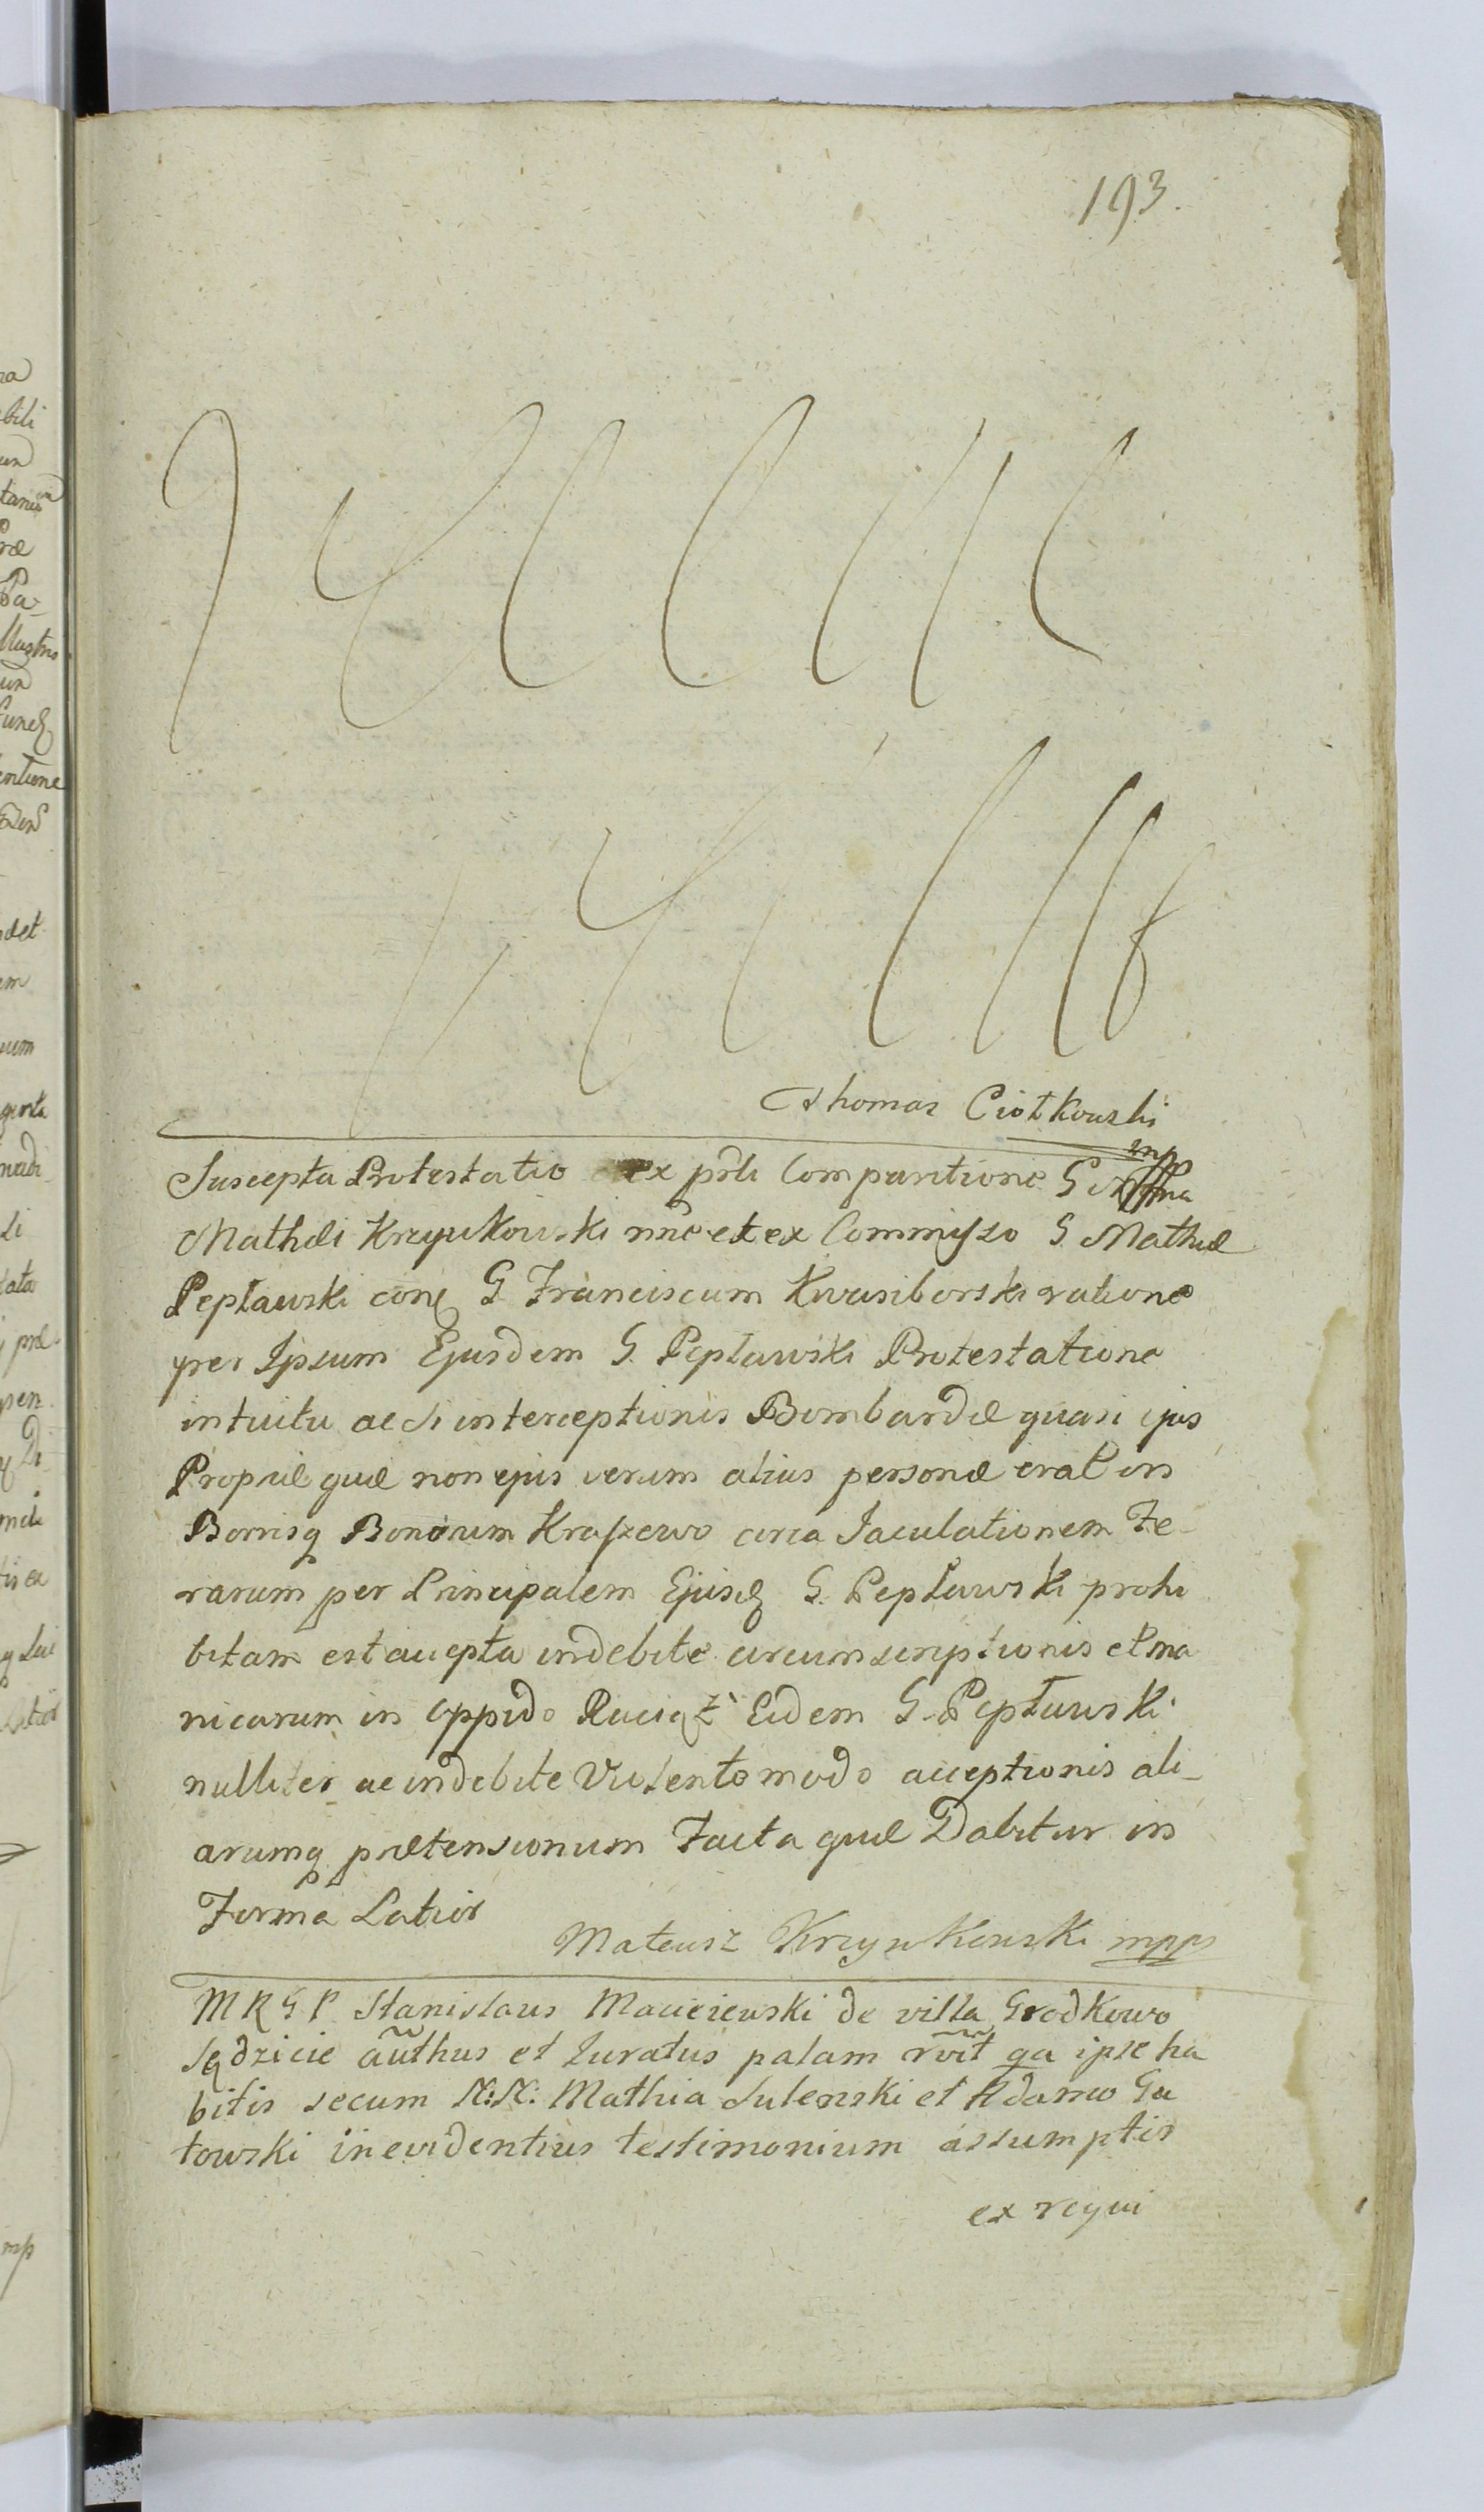 193.
Thomas Ciołkowski
mpp
Suscepta Protestatio ex prti Comparitione G
Mathæi Krzyukowski nne et ex Commisso G Mathiæ
Pepławski conq G Franciscum Kwasiborski ratione
per Ipsum Ejusdem G. Pepławski Protestatione
intuitu ac si interceptionis Bombardæ quasi ejus
Propriæ quæ non ejus verum alius personæ erat in
Borrisq Bonorum Kraszewo circa Jaculationem Fe-
rarum per Principalem Ejusq G. Pepławski prohi
bitam est accepta indebite circumscriptionis et ma
nicarum in Oppido Raciąż Eidem G. Pepławski
nulliter ac indebite Violento modo acceptionis ali-
arumq prætensionum Facta quæ Dabitur in
Forma Latior
Mateusz Krzyukowski mpp
M R G P Stanislaus Macieiewski de villa Grodkowo
Sądzicie aũthus et Juratus palam rõit qa ipse ha
bitis secum N: N: Mathia Sulenski et Adamo Ga
towski in evidentius testimonium assumptis
ex requi